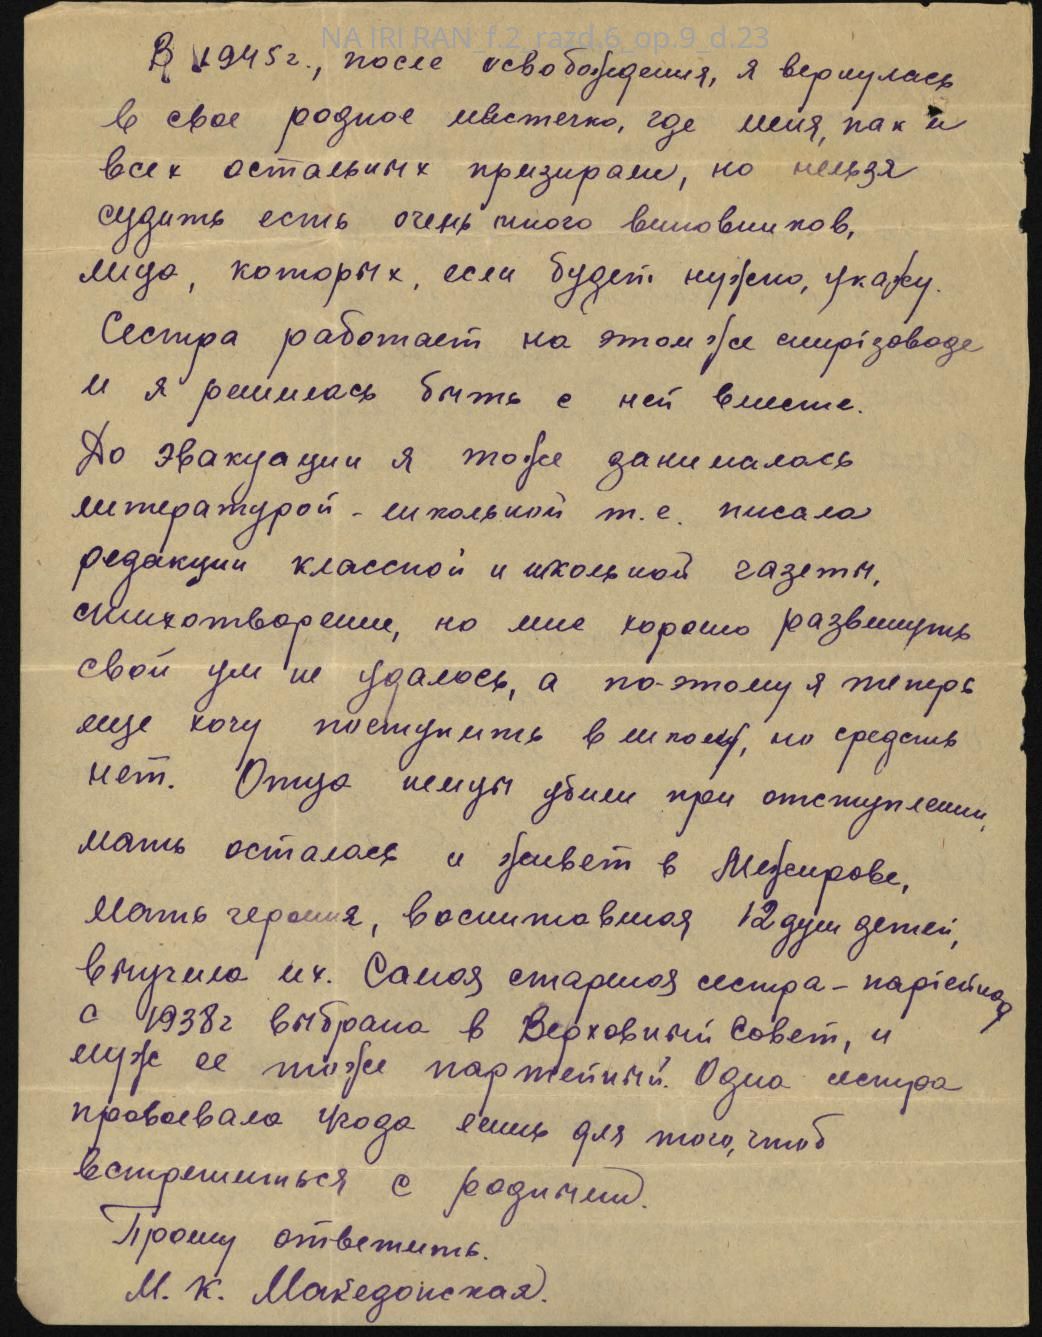 NA IRI RAN_f.2_razd.6_op.9_d.23
В 1945 г., после освобождения, я вернулась
в свое родное местечко, где меня, как и
всех остальных призирали, но нельзя
судить есть очень много виновников,
лица, которых, если будет нужно, укажу.
Сестра работает на этом же спиртзаводе
и я решилась быть с ней вместе.
До эвакуации я тоже занималась
литературой - школьной т.е. писала
редакции классной и школьной газеты,
стихотворении, но мне хорошо развинуть
свой ум не удалось, а по-этому я теперь
еще хочу поступить в школу, но средств
нет. Отца немцы убили при отступлении,
мать осталась и живет в Межирове,
Мать героиня, воспитавшая 12 душ детей,
выучила их. Самая старшая сестра - партейная
с 1938 г выбрана в Верховный Совет, и
муж ее тоже партейный. Одна сестра
провоевала 4 года лишь для того, чтоб
встретиться с родными.
Прошу ответить.
М. К. Македонская.